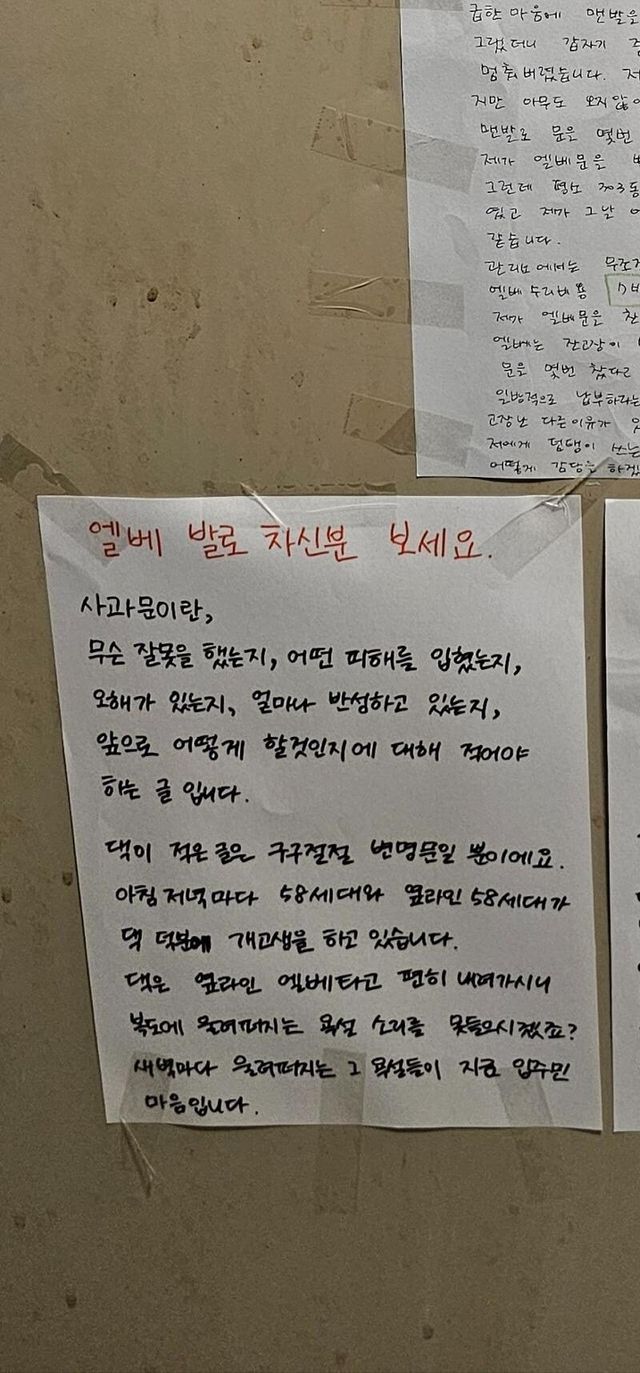 급한 마음에 맨발을
그랬더니 갑자기
멈춰버렸습니다.
지만 아무도 오지않아
맨발로 문을 몇번
제가 엘베문을
그런데 평소 303동
였고 제가 그날
같습니다.
관리소에서는 무조건
엘베 수리비용
제가 엘베문을 찬
엘베는 잔고장이
문을 몇번 찼다고
일방적으로 납부하라는
고장난 다른이유가
저에게 덤탱이 쓰는
어떻게 감당을 하겠
엘베 발로 차신분 보세요.
사과문이란,
무슨 잘못을 했는지, 어떤 피해를 입혔는지,
오해가 있는지, 얼마나 반성하고 있는지,
앞으로 어떻게 할것인지에 대해 적어야
하는 글 입니다.
댁이 적은 글은 구구절절 변명문일 뿐이에요.
아침 저녁마다 58세대와 옆라인 58세대가
댁 덕분에 개고생을 하고 있습니다.
댁은 옆라인 엘베타고 편히 내려가시니
복도에 울려퍼지는 욕설 소리를 못들으시겠죠?
새벽마다 울려퍼지는 그 욕설들이 지금 입주민
마음입니다.